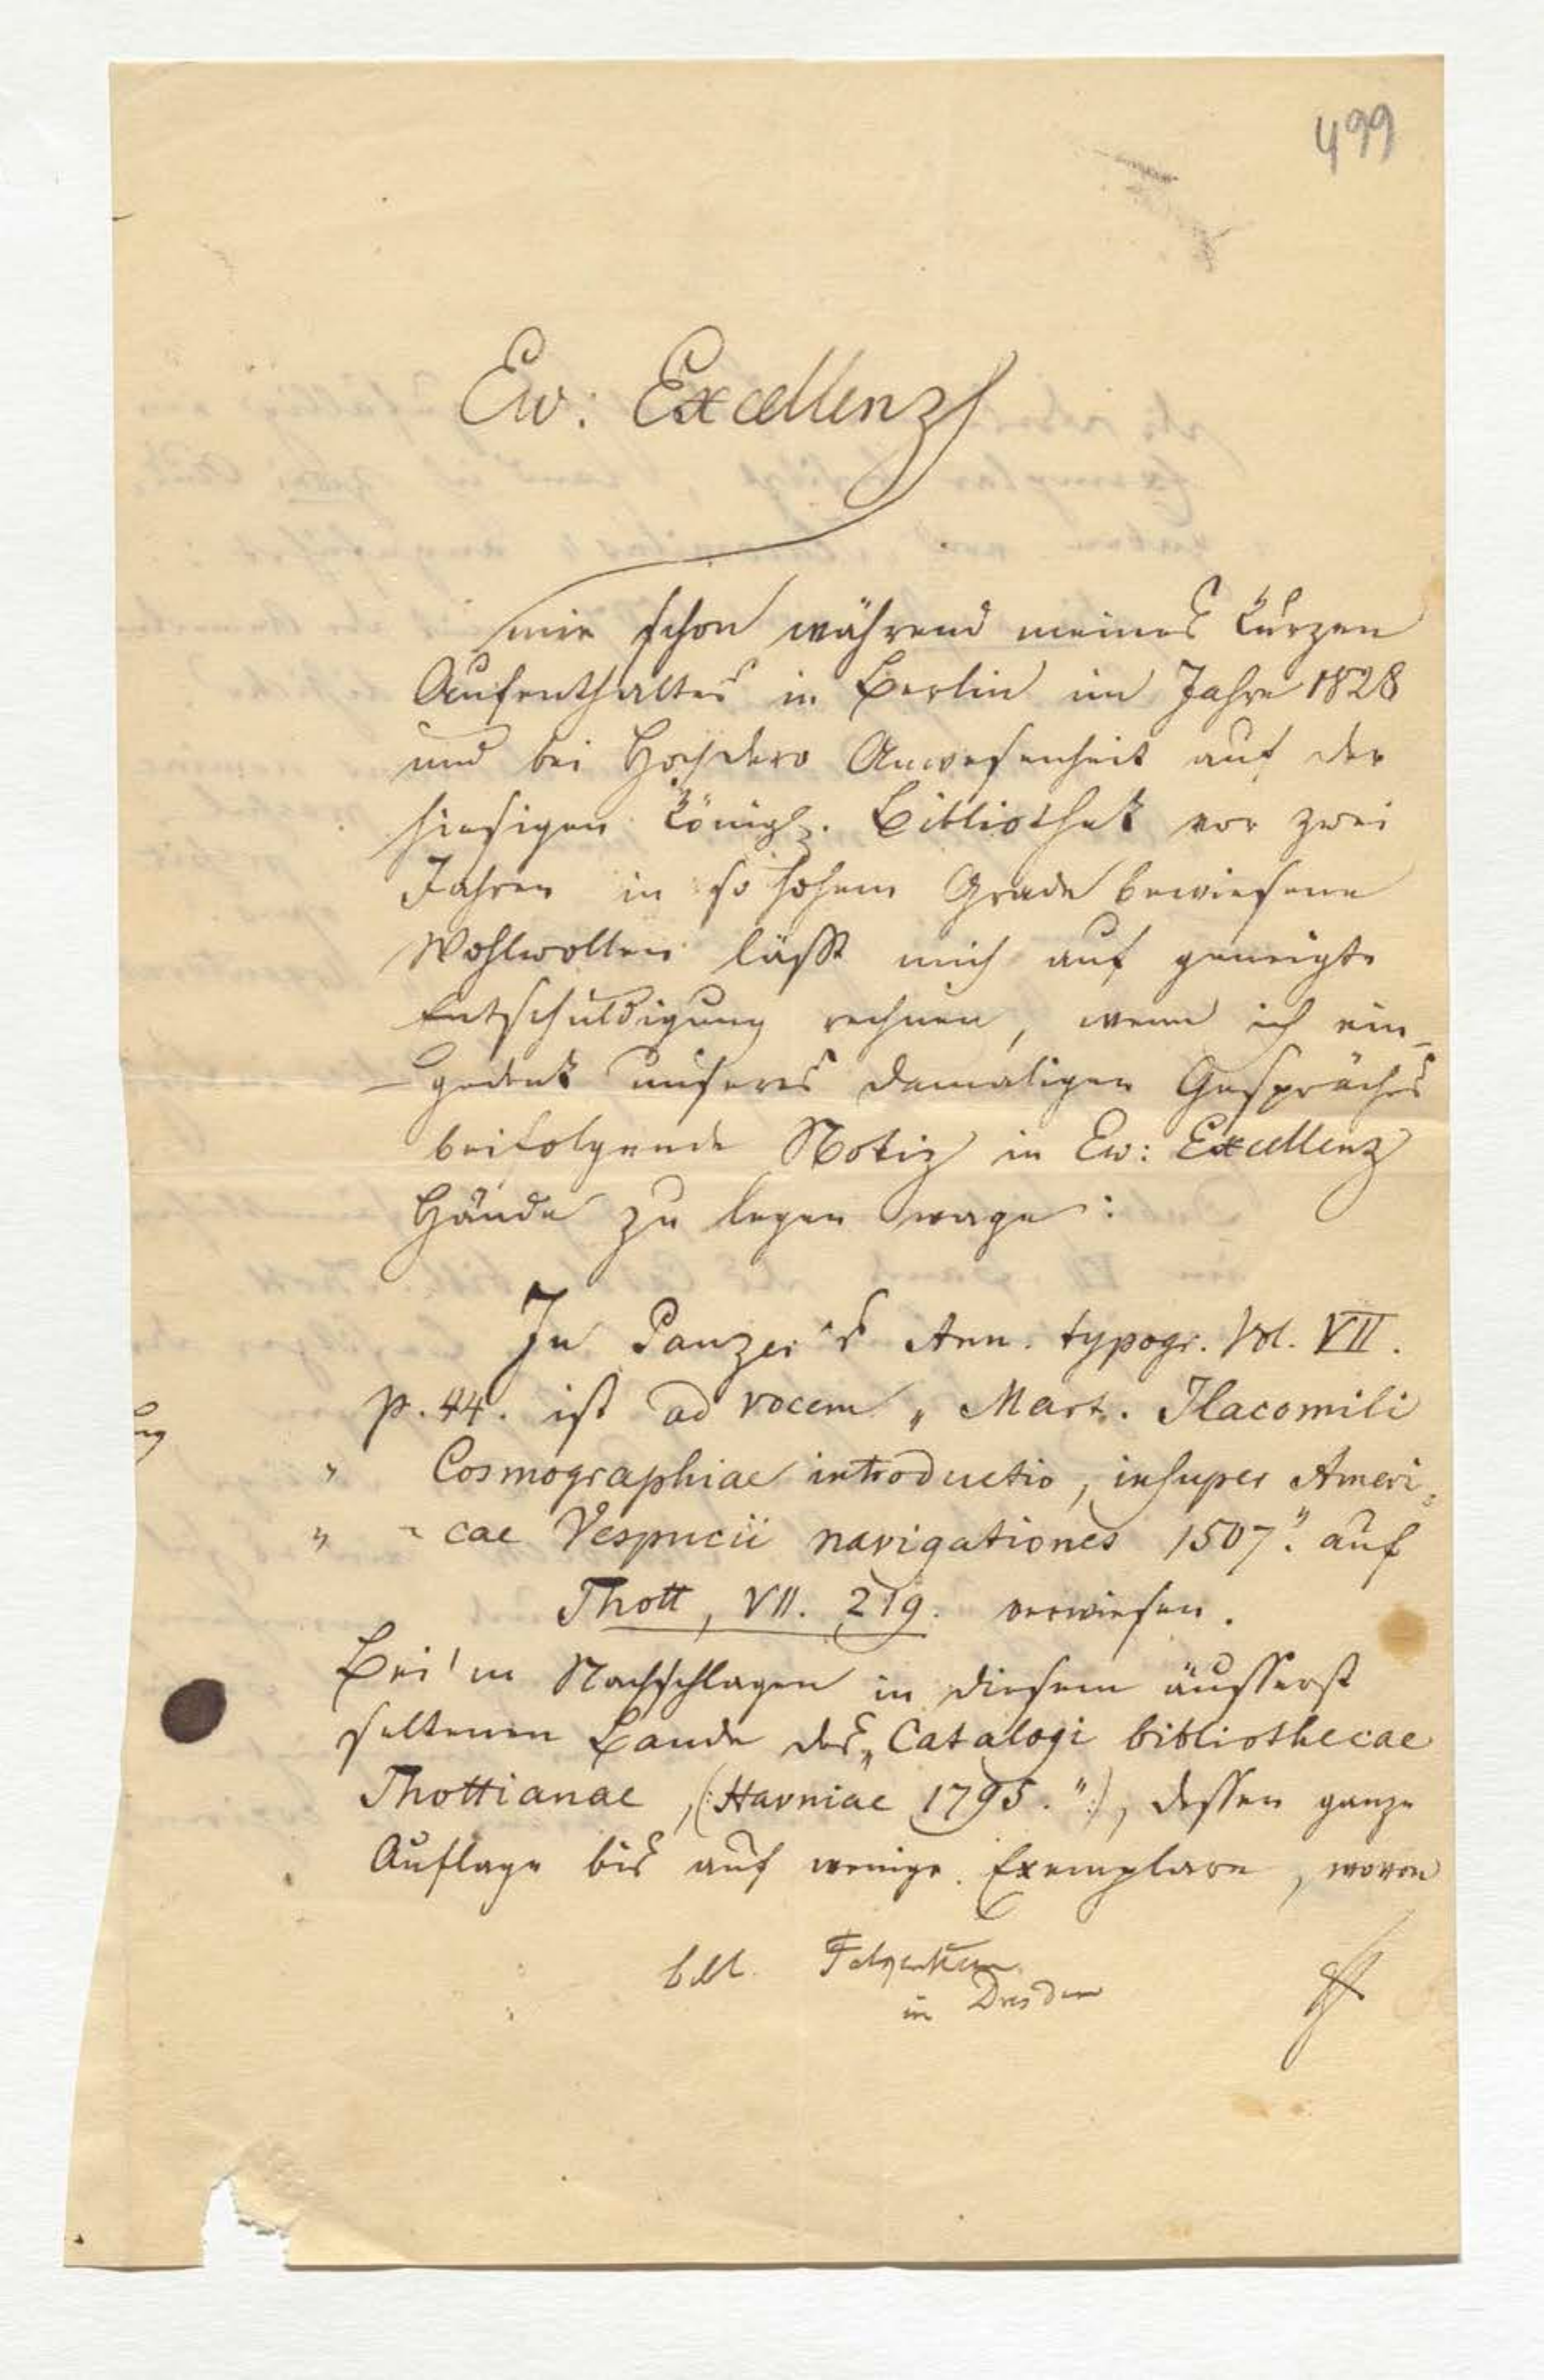 499
Ew: Excellenz
mir schon während meines kurzen
Aufenthaltes in Berlin im Jahre 1828
und bei Hochdero Anwesenheit auf der
hiesigen königl. Bibliothek vor zwei
Jahren in so hohem Grade bewiesene
Wohlwollen läßt mich auf geneigte
Entschuldigung rechnen, wenn ich ein-
gedenk unseres damaligen Gespräches
beifolgende Notiz in Ew: Excellenz
Hände zu legen wage:
In Panzer's Ann. typogr. Vol. VII.
p. 44. ist ad vocem „Mart. Ilacomili
" Cosmographiae introductio, insuper Ameri-
" cae Vespucii navigationes 1507." auf
Thott, VII. 219. verwiesen.
Bei'm Nachschlagen in diesem äusserst
seltenen Bande des „Catalogi bibliothecae
Thottianae, (: Havniae 1795." :), dessen ganze
Auflage bis auf wenige Exemplare, wovon
in Dresden